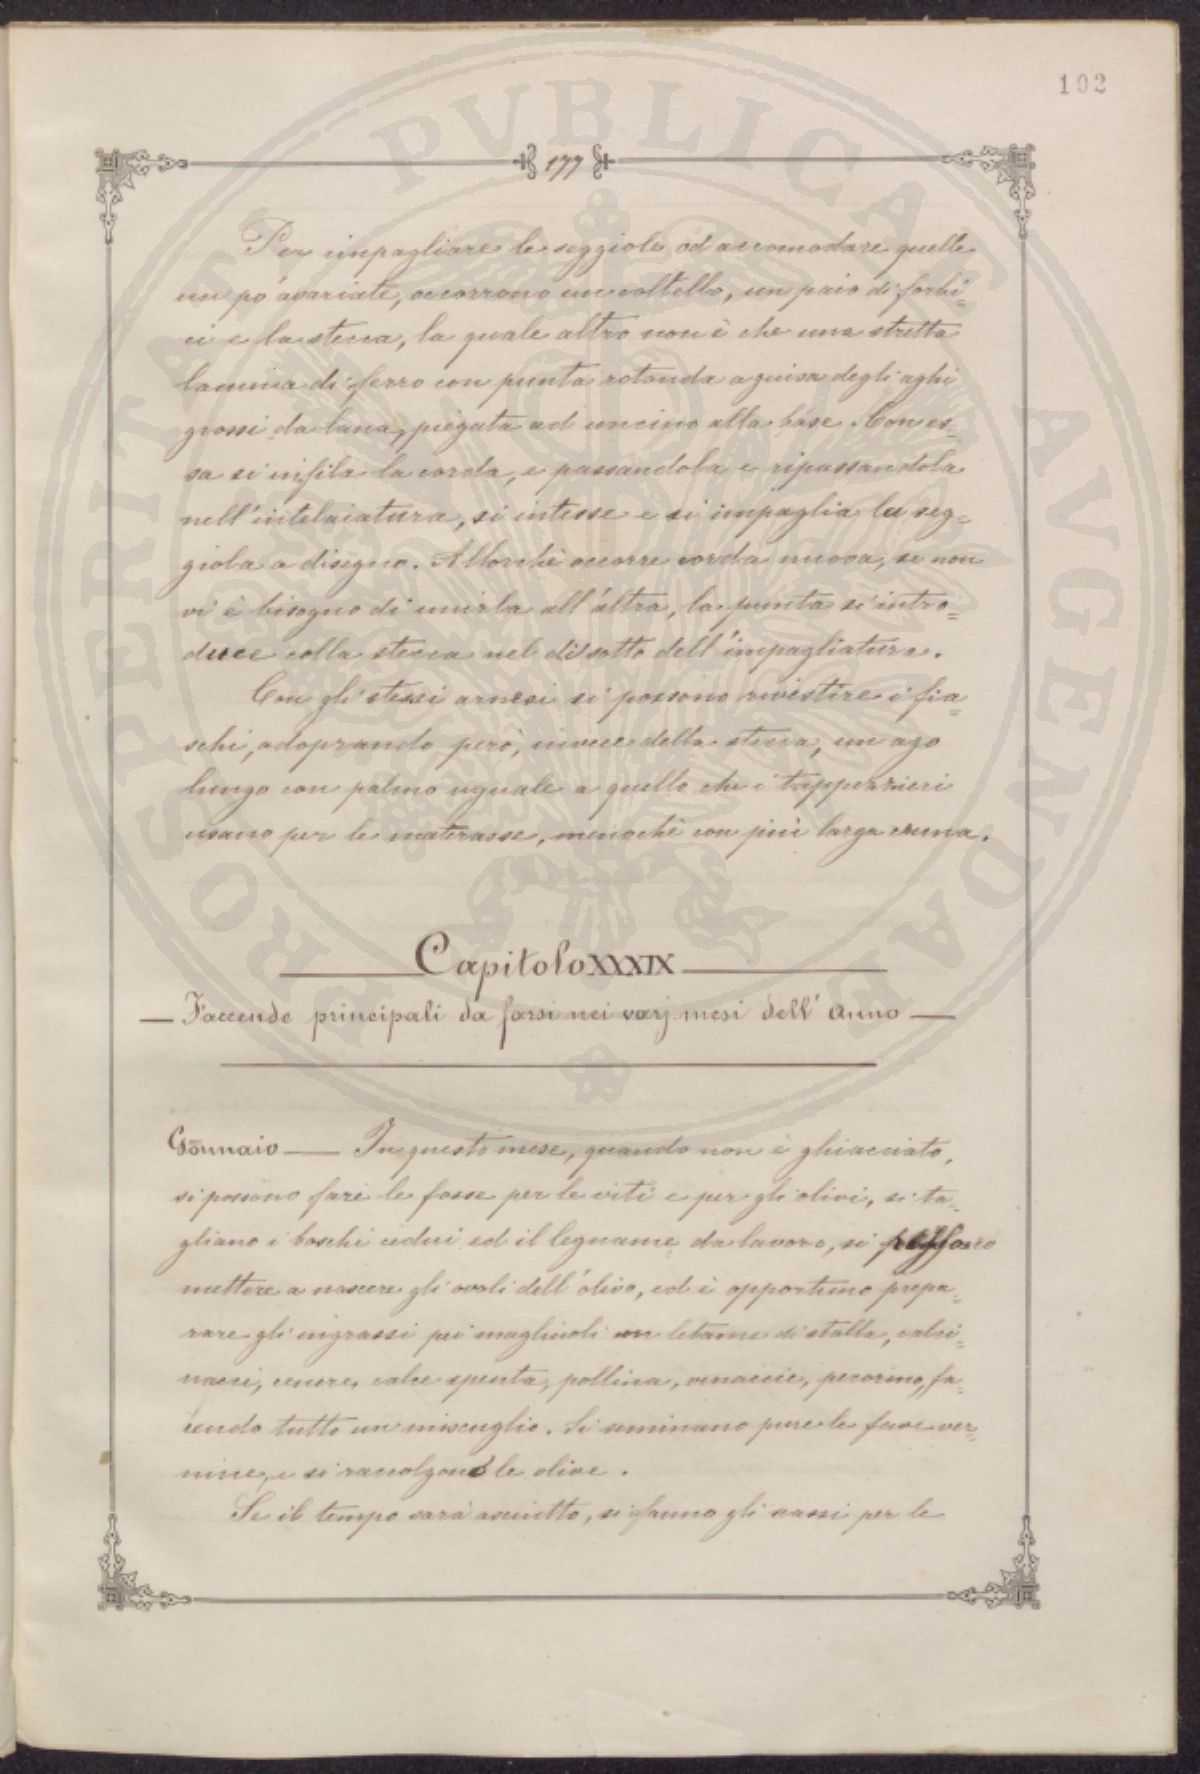 102
177
Per impagliare le seggiole od accomodare quelle
un po' avariate, occorrono un coltello, un paio di forbi=
ci e la stecca, la quale altro non è che una stretta
lamina di ferro con punta rotonda a guisa degli aghi
grossi da lana, piegata ad uncino alla base. Con es=
sa si infila la corda, e passandola e ripassandola
nell'intelaiatura, si intesse e si impaglia la seg=
giola a disegno. Allorchè occorre corda nuova, se non
vi è bisogno di unirla all'altra, la punta si intro=
duce colla stecca nel disotto dell'impagliatura.
Con gli stessi arnesi si possono rivestire i fia=
schi, adoprando però, invece della stecca, un ago
lungo con palmo uguale a quello che i tappezzieri
usano per le materasse, menochè con più larga cruna.
Capitolo XXXIX
Faccende principali da farsi nei varj mesi dell'Anno
Gennaio — In questo mese, quando non è ghiacciato,
si possono fare le fosse per le viti e per gli olivi, si ta=
gliano i boschi cedui ed il legname da lavoro, si possono
mettere a nascere gli ovoli dell'olivo, ed è opportuno prepa=
rare gli ingrassi pei magliuoli con letame di stalla, calci=
nacci, cenere, calce spenta, pollina, vinaccie, pecorino, fa=
cendo tutto un miscuglio. Si seminano pure le fave ver=
nine, e si raccolgono le olive.
Se il tempo sarà asciutto, si fanno gli scassi per le
PROSPERITATI PVBLICAE AVGENDAE